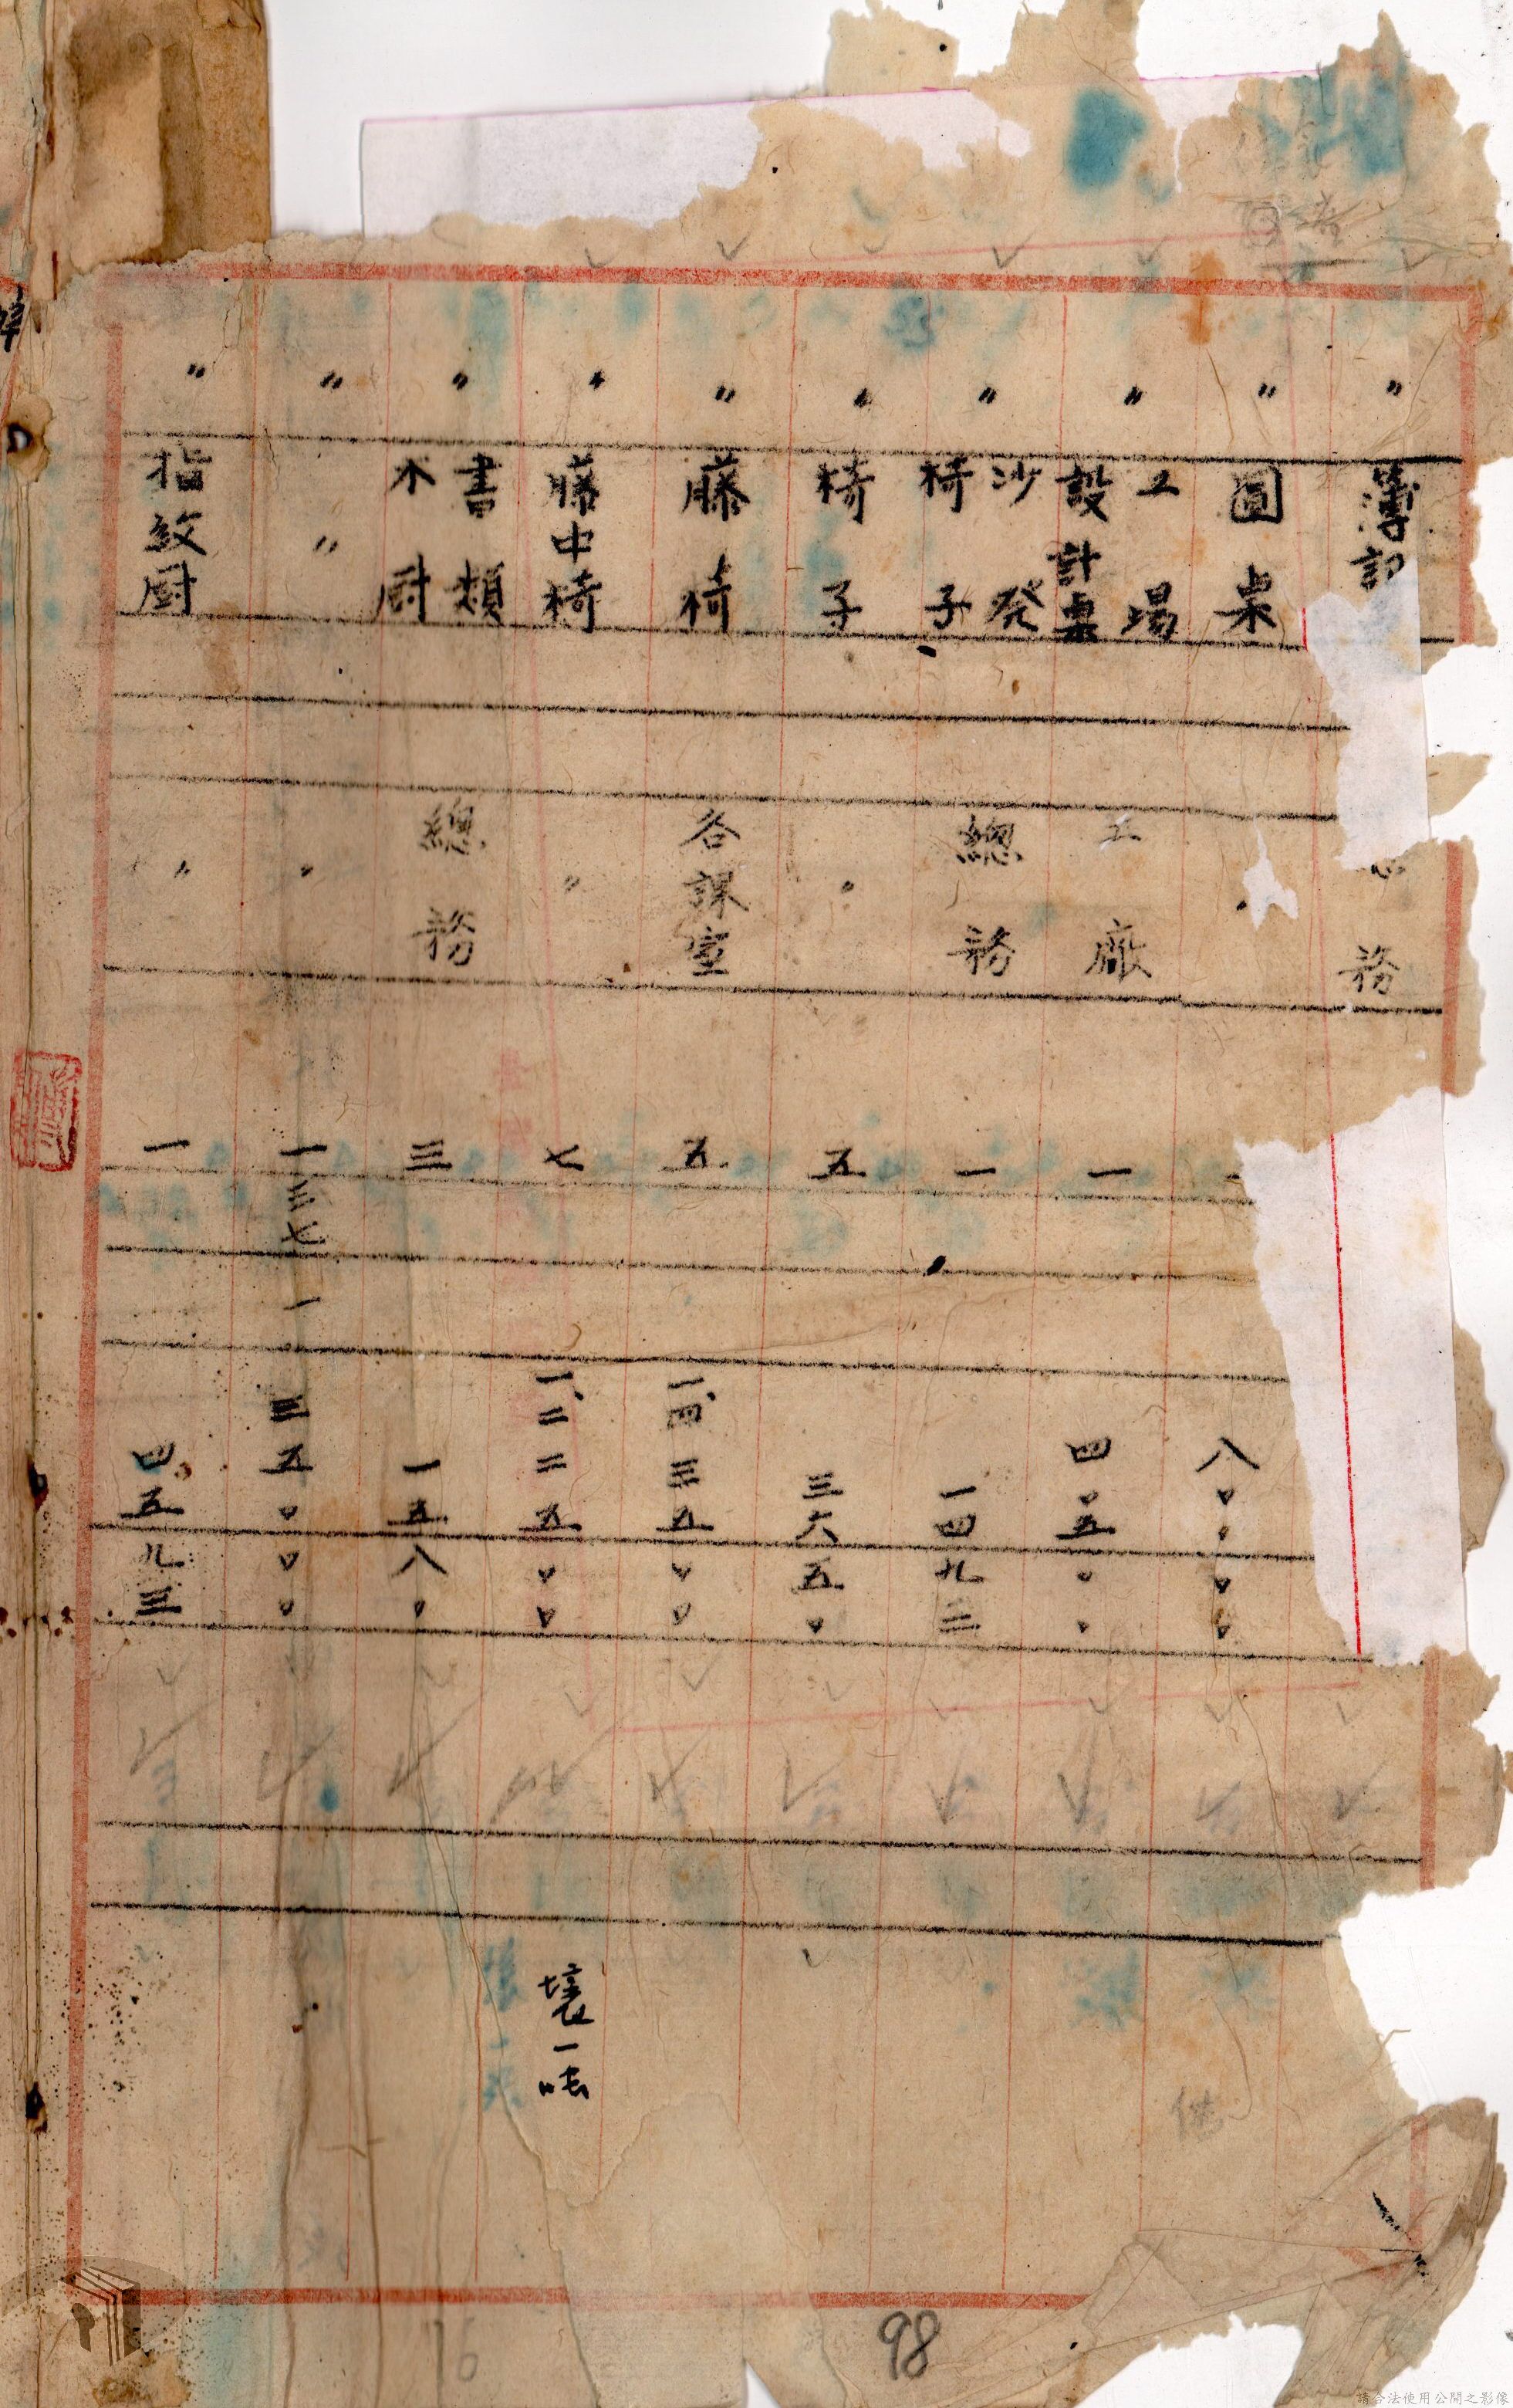 〃 簿記 務
〃 圓桌 〃 一 八〇〇〇〇
〃 工場設計桌 工廠 一 四〇五〇〇
〃 沙發椅子 總務 一 一四九二
〃 椅子 〃 五 三六五〇
〃 藤椅 各課室 五 一、四三五〇〇
〃 藤中椅 〃 七 一、二二五〇〇
〃 書類木厨 總務 三 一五八〇
〃 〃 〃 一 三七 一 三五〇〇〇
〃 指紋厨 〃 一 四五九三
壞一味
98
16
請合法使用公開之影像